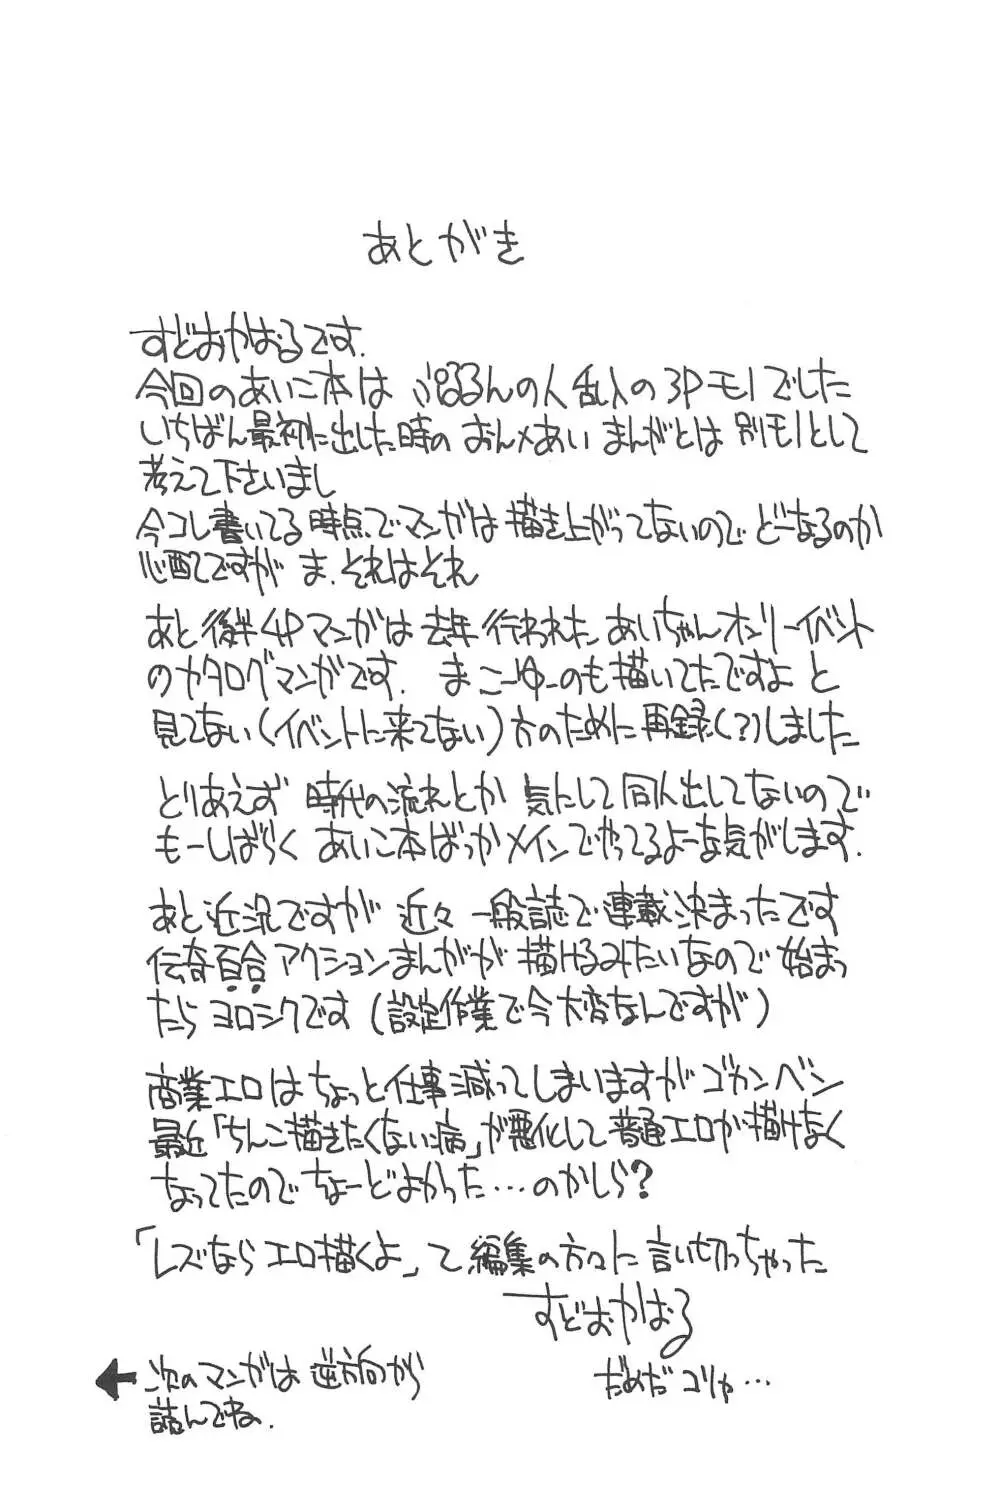 あとがき
すどおかおるです.
今回のあいこ本は ぷるるんの人乱入の3Pモノでした
いちばん最初に出した時の おんメあい まんがとは 別モノとして
考えて下さいまし
今コレ書いてる時点でマンガは描き上がってないので どーなるのか
心配ですが ま.それはそれ
あと後半4Pマンガは去年行われた あいちゃんオンリーイベント
のカタログマンガです. まこーゆーのも描いてたですよ と
見てない(イベントに来てない)方のために再録(?)しました
とりあえず 時代の流れとか 気にして同人出してないので
もーしばらく あいこ本ばっかメインでやってるよーな気がします.
あと近況ですが 近々 一般誌で連載決まったです
伝奇百合アクションまんがが 描けるみたいなので 始まっ
たら ヨロシクです (設定作業で今大変なんですが)
商業エロはちょっと仕事減ってしまいますがゴカンベン
最近「ちんこ描きたくない病」が悪化して普通エロが描けなく
なってたので ちょーどよかった…のかしら?
「レズなら エロ描くよ」て 編集の方々に 言い切っちゃった
すどおかおる
だめだ コリャ…
← 次のマンガは 逆方向から
読んでね.